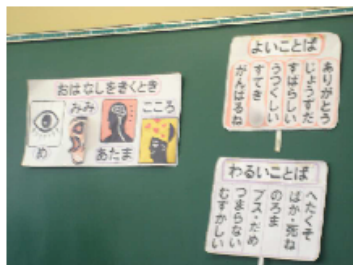 おはなしをきくとき
め
みみ
あたま
こころ
よいことば
ありがとう
じょうずだ
すばらしい
うつくしい
すてき
がんばるね
わるいことば
へたくそ
ばか・死ね
のろま
ブス・だめ
つまらない
むずかしい